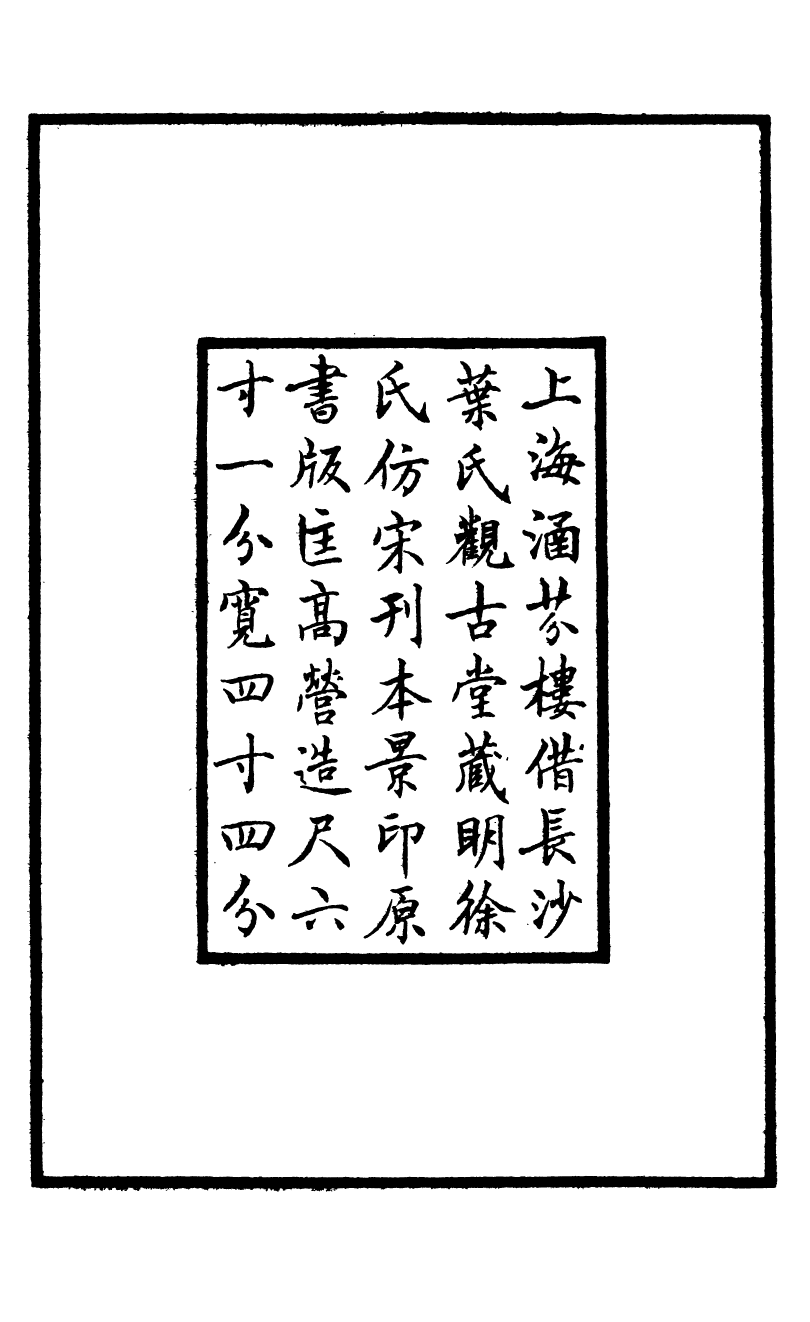 上海涵芬樓借長沙
葉氏觀古堂藏明徐
氏仿宋刊本景印原
書版匡高營造尺六
寸一分寬四寸四分